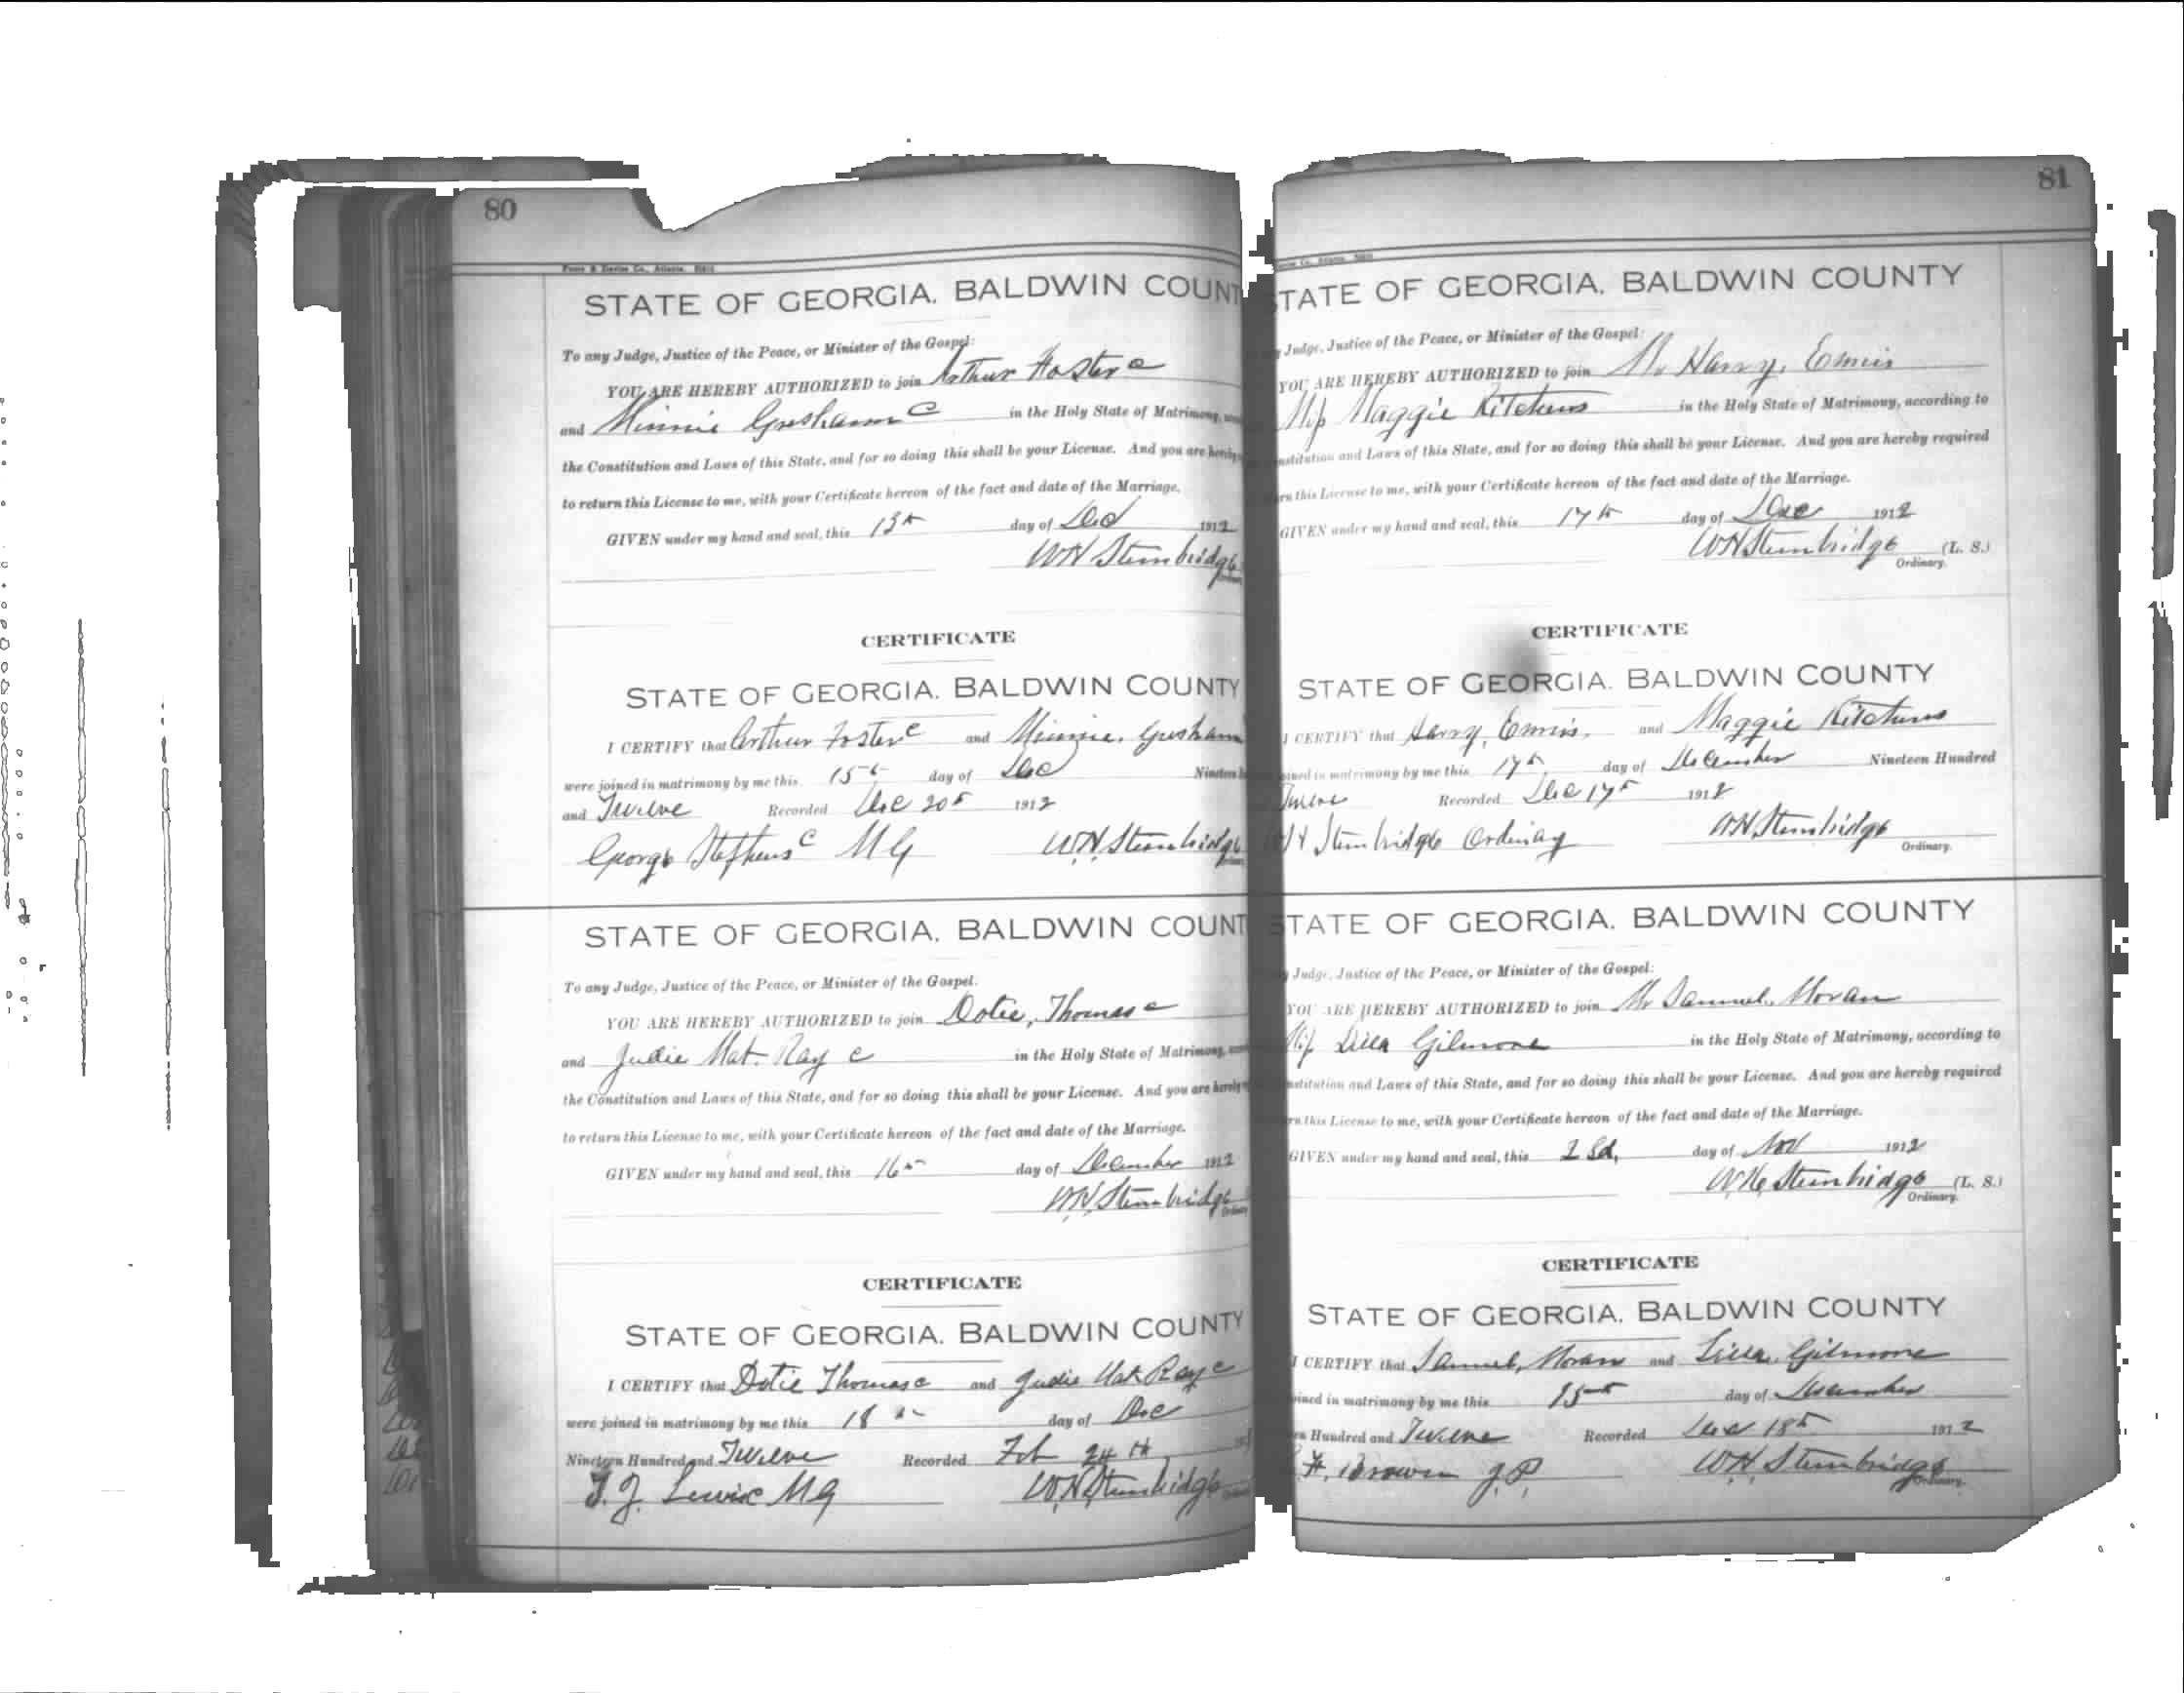 80
STATE OF GEORGIA. BALDWIN COUNT
To any Judge, Justice of the Peace, or Minister of the Gospel:
YOU ARE HEREBY AUTHORIZED to join Arthur Foster c
and Minnie Gresham c in the Holy State of Matrimony,
the Constitution and Laws of this State, and for so doing this shall be your License. And you are hereby
to return this License to me, with your Certificate hereon of the fact and date of the Marriage.
GIVEN under my hand and seal, this 13th day of Dec 1912
WH Stembridge
CERTIFICATE
STATE OF GEORGIA. BALDWIN COUNTY
I CERTIFY that Arthur Foster c and Minnie Gresham
were joined in matrimony by me this 15th day of Dec Nineteen
and Twelve Recorded Dec 20th 1912
George Stephens c MG W.H. Stembridge
STATE OF GEORGIA. BALDWIN COUNT
To any Judge, Justice of the Peace, or Minister of the Gospel.
YOU ARE HEREBY AUTHORIZED to join Dotie, Thomas c
and Judie Mat. Ray c in the Holy State of Matrimony,
the Constitution and Laws of this State, and for so doing this shall be your License. And you are hereby
to return this License to me, with your Certificate hereon of the fact and date of the Marriage.
GIVEN under my hand and seal, this 16th day of December 1912
W.H. Stembridge
CERTIFICATE
STATE OF GEORGIA. BALDWIN COUNTY
I CERTIFY that Dotie Thomas c and Judie Mat Ray c
were joined in matrimony by me this 18th day of Dec
Nineteen Hundred and Twelve Recorded Feb 24th
J. J. Lewis MG W.H. Stembridge
81
STATE OF GEORGIA. BALDWIN COUNTY
Judge, Justice of the Peace, or Minister of the Gospel:
YOU ARE HEREBY AUTHORIZED to join Mr Harry, Ennis
Miss Maggie Kitchens in the Holy State of Matrimony, according to
Constitution and Laws of this State, and for so doing this shall be your License. And you are hereby required
this License to me, with your Certificate hereon of the fact and date of the Marriage.
GIVEN under my hand and seal, this 17th day of Dec 1912
WH Stembridge (L. S.)
Ordinary.
CERTIFICATE
STATE OF GEORGIA. BALDWIN COUNTY
I CERTIFY that Harry, Ennis. and Maggie Kitchens
joined in matrimony by me this 17th day of December Nineteen Hundred
Twelve Recorded Dec 17th 1912
WH Stembridge Ordinary WH Stembridge
Ordinary.
STATE OF GEORGIA. BALDWIN COUNTY
Judge, Justice of the Peace, or Minister of the Gospel:
YOU ARE HEREBY AUTHORIZED to join Mr Samuel. Moran
Miss Lilla Gilmore in the Holy State of Matrimony, according to
Constitution and Laws of this State, and for so doing this shall be your License. And you are hereby required
this License to me, with your Certificate hereon of the fact and date of the Marriage.
GIVEN under my hand and seal, this day of Nov 1912
W.H. Stembridge (L. S.)
Ordinary.
CERTIFICATE
STATE OF GEORGIA. BALDWIN COUNTY
I CERTIFY that Samuel, Moran and Lilla. Gilmore
joined in matrimony by me this 15th day of December
Hundred and Twelve Recorded Dec 18th 1912
Brown J.P. W.H. Stembridge
Ordinary.